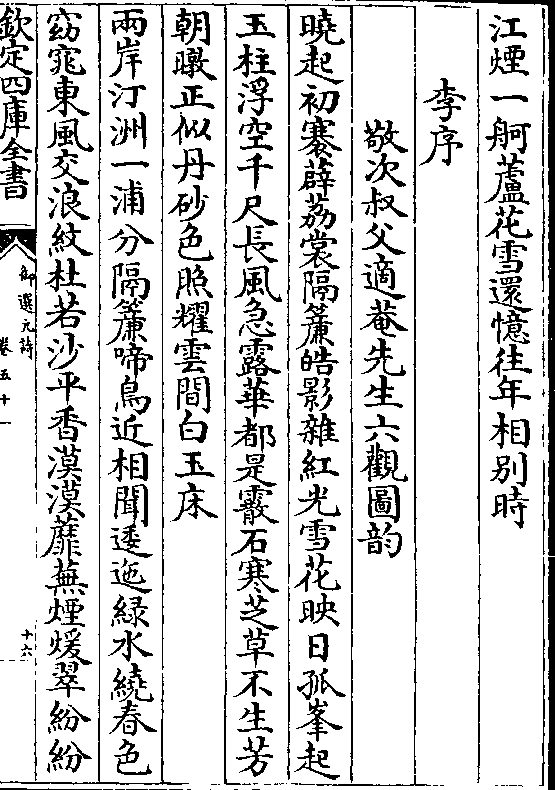 江煙一舸蘆花雪還憶往年相別時
李序
敬次叔父適菴先生六觀圖韵
曉起初褰薜荔裳隔簾皓影雜紅光雪花映日孤峯起
玉柱浮空千尺長風急露華都是霰石寒芝草不生芳
朝暾正似丹砂色照耀雲間白玉床
兩岸汀洲一浦分隔簾啼鳥近相聞逶迤緑水繞春色
窈窕東風交浪紋杜若沙平香漠漠蘼蕪煙煖翠紛紛
欽定四庫全書
御選元詩
卷五十一
十六